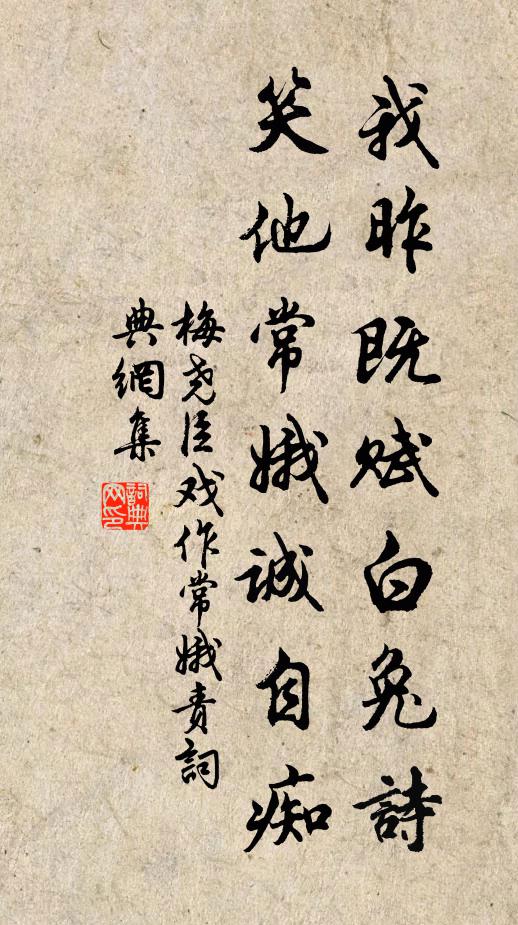 我昨既赋白兔詩
笑他常娥誠自痴
梅尧臣戏作常娥责詞
典網集
詞典网印